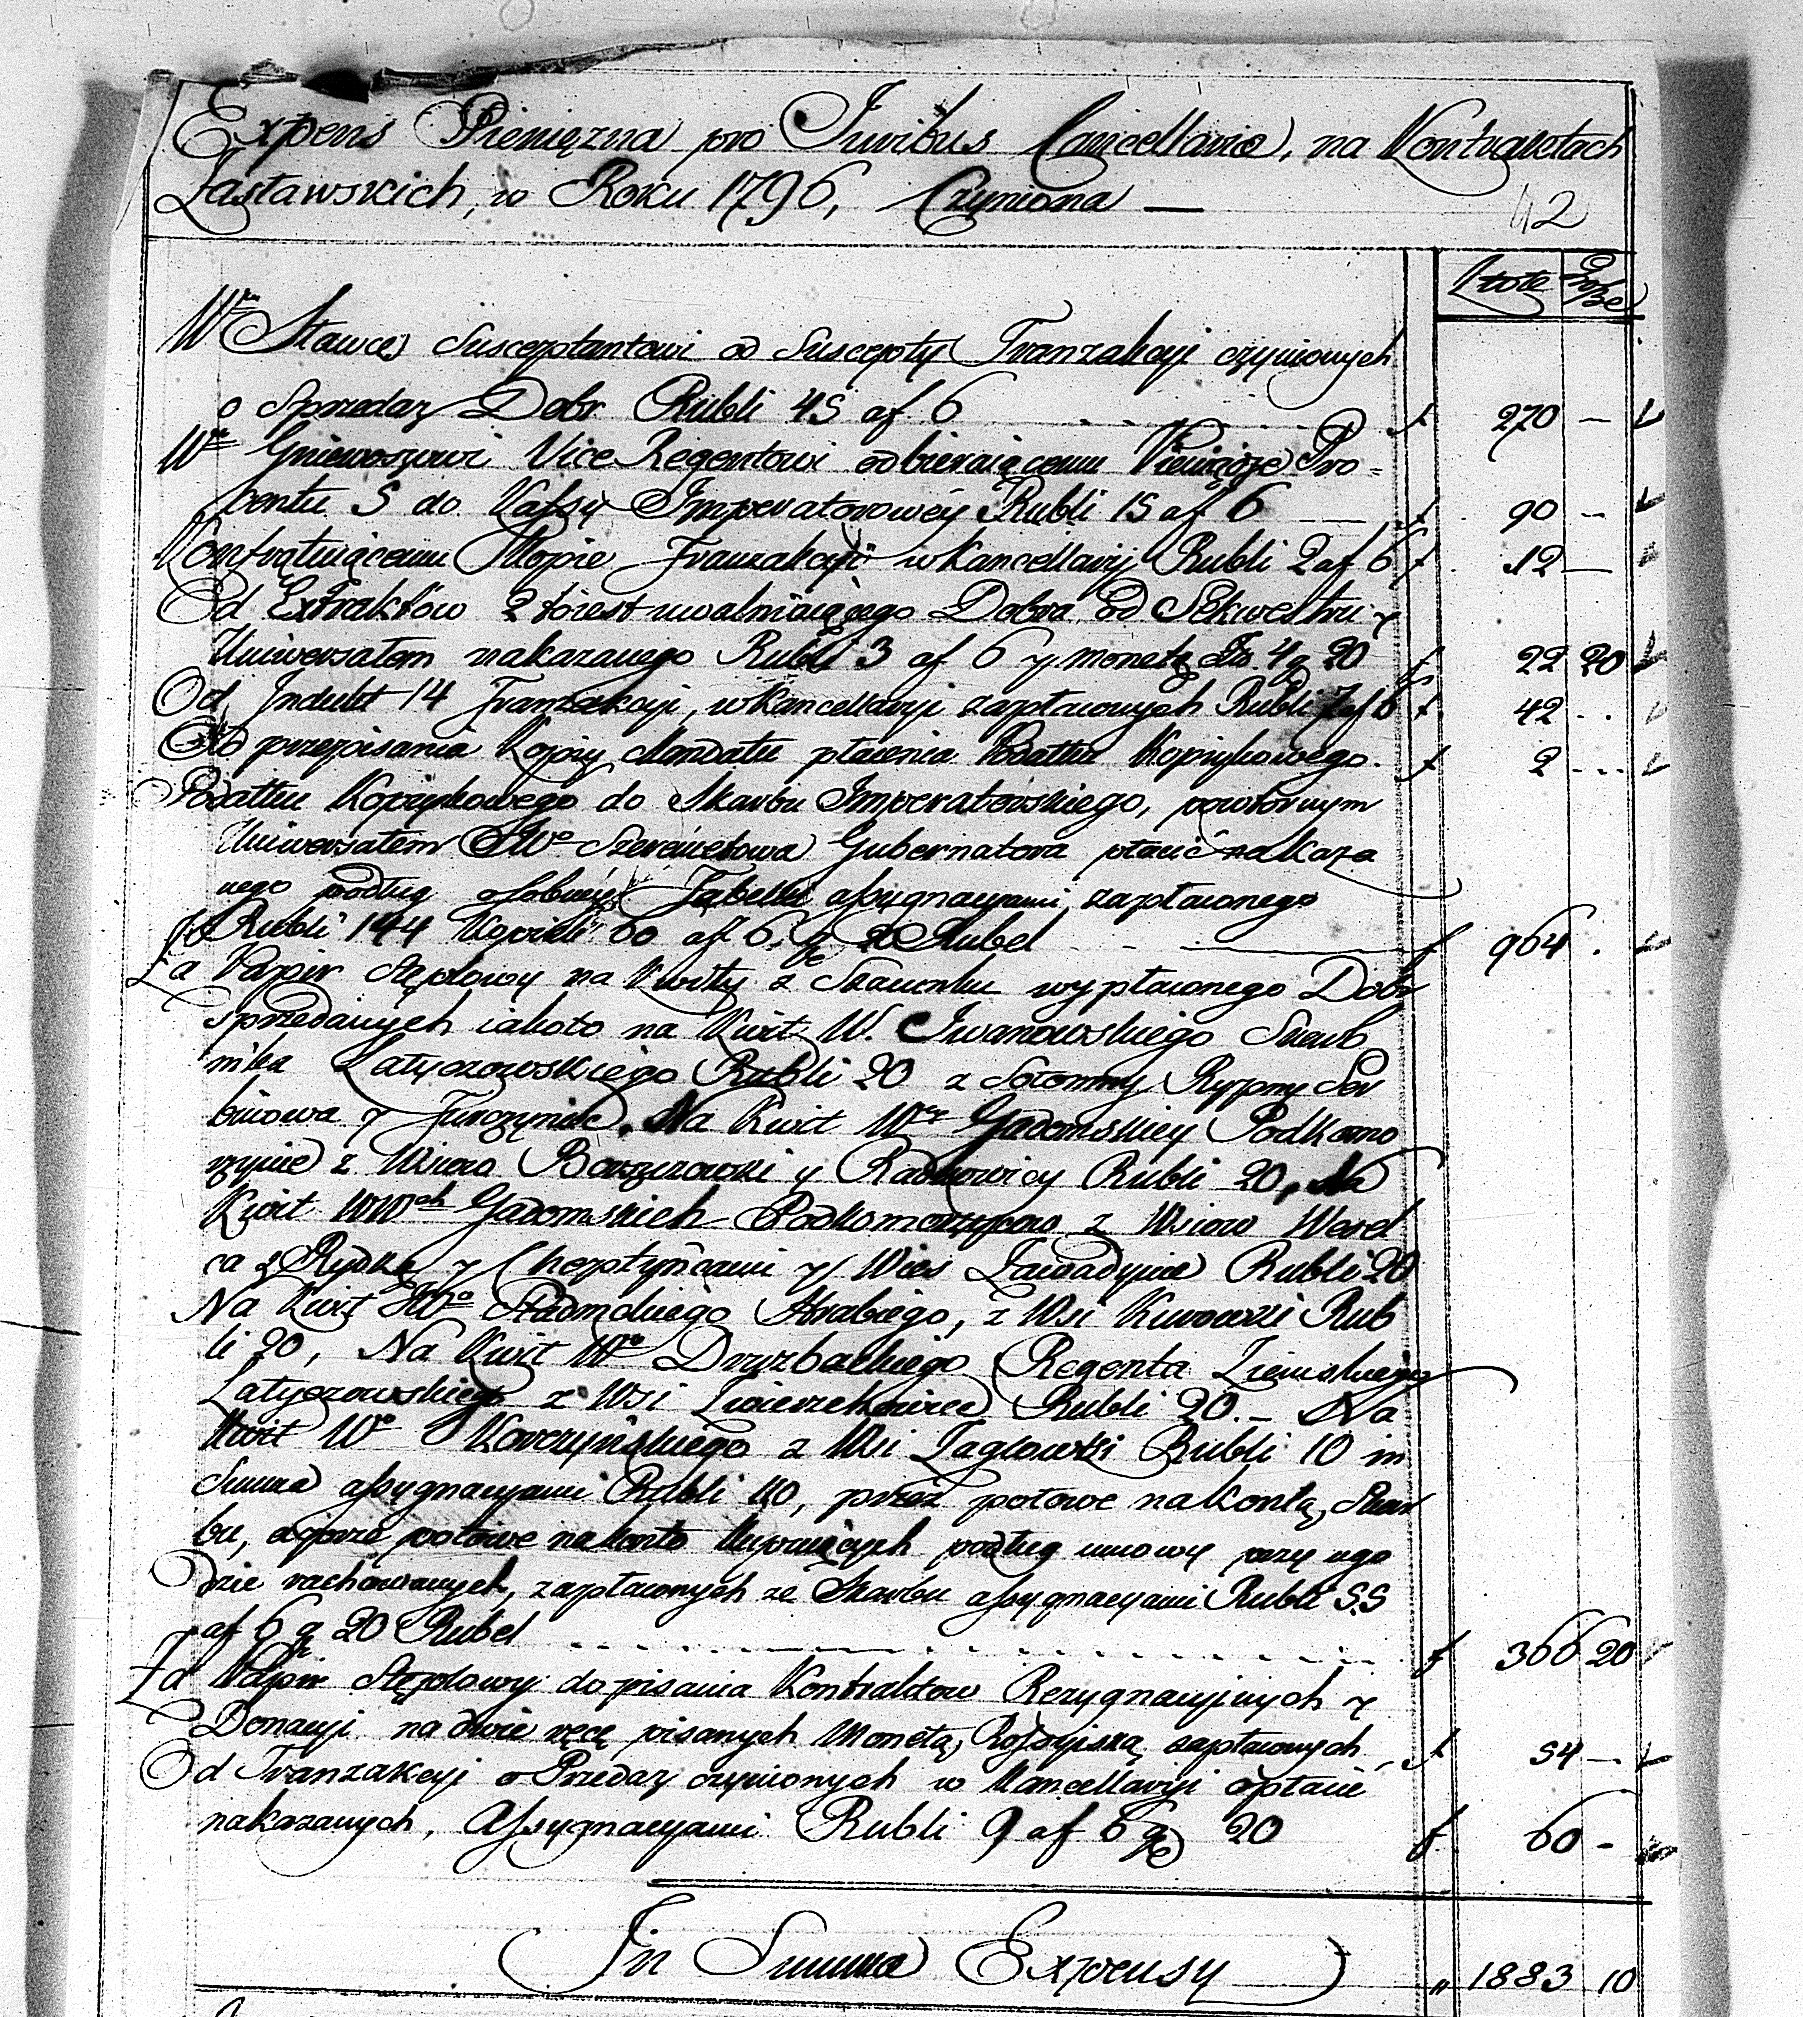 Expens Pieniężna pro Juribus Cancellariæ, na Kontraktach
Zasławskich, w Roku 1796, Czyniona —
42
Złote Grosze
Wmu Stawce Susceptantowi od Suscepty Tranzakcyi czynionych
o Sprzedaz Dobr Rubli 45 af 6 f 270 —
Wmu Gniewoszowi Vice Regentowi odbieraiącemu Pieniądze Pro=
centu 5 do Kassy Imperatorowéy Rubli 15 af 6 — f 90 —
Kopie Tranzakcyi w Kancellaryi Rubli 2 af 6 f 12 —
Od Extraktow 2 uwalniaiącego Dobra od Sekwestru y
Uniwersałem nakazanego Rubli 3 af 6 y monetą 4 g 20 f 22 20
Od Indukt 14 Tranzakcyi, w Kancellaryi zapłaconych Rubli 7 af 6 f 42
Od przepisania Kopiy Mandatu płacenia Podatku Kopiykowego. f 2
Podatku Kopiykowego do Skarbu Imperatorskiego, powtornym
Uniwersałem JWo Szeremetowa Gubernatora płacić nakaza
nego podług osobnéy Tabelli assygnacyami zapłaconego
Rubli 144 Kopiiek 60 af 6, g 20 Rubel — f 964
Za Papir Stęplowy na Kwity z Szacunku wypłaconego Dobr
Sprzedanych iakoto na Kwit W. Iwanowskiego Skarb
nika Latyczowskiego Rubli 20 z Sołomny Rypny Ser
binowa y Jurczyniec. Na Kwit Wey Gadomskiey Podkomo
rzynie z Wsiow Borszczowki y Radkowicy Rubli 20, Na
Kwit WWch Gadomskich Podkomorzycow z Wsiow Wesel
ca z Rudką y Chepłyńcami y Wies Zawadynie Rubli 20
Na Kwit JWo Hrabiego, z Wsi Kurowki Rub
li 20, Na Kwit Wo Druzbackiego Regenta Ziemskiego
Latyczowskiego z Wsi Zwierzchowiec Rubli 20. – Na
Kwit Wo Korczyńskiego z Wsi Rubli 10 in
Summa assygnacyami Rubli 110, przez połowe na Kontą Skar
bu, a przez połowe na Konto Kupuiących podług umowy przy ugo
dzie rachowanych, zapłaconych ze Skarbu assygnacyami Rubli 55
af 6 g 20 Rubel f 366 20
Za Papir Stęplowy do pisania Kontraktow Rezygnacyinych y
Donacyi na dwie ręce pisanych Monetą Rossyiską zapłaconych f 54 —
Od Tranzakcyi o Przedaz czynionych w Kancellaryi opłacić
nakazanych, Assygnacyami Rubli 9 af 6 g 20 f 60 –
In Summa Expensy „ 1883 10